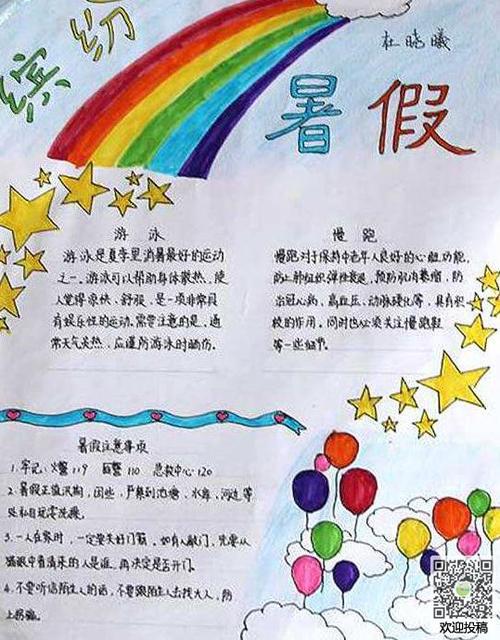 缤纷
暑假
杜晓曦
游泳
游泳是夏季里消暑最好的运动
之一。游泳可以帮助身体散热,使
人觉得凉快、舒服,是一项非常具
有娱乐性的运动。需要注意的是,通
常天气炎热,应谨防游泳时晒伤。
慢跑
慢跑对于保持中老年人良好的心脏功能,
防止肺组织弹性衰退,预防肌肉萎缩,防
治冠心病,高血压、动脉硬化等,具有积
极的作用。同时也必须关注慢跑鞋
等一些细节。
暑假注意事项
1.牢记:火警119 匪警110 急救中心120
2.暑假正值汛期,因些,严禁到池塘,水库,河边等
处私自玩零洗澡。
3.一人在家时,一定要关好门窗。如有人敲门,先要从
猫眼中看清来的人是谁,再决定是否开门。
4.不要听信陌生人的话,不要跟陌生人去找大人,防
上拐骗。
欢迎投稿